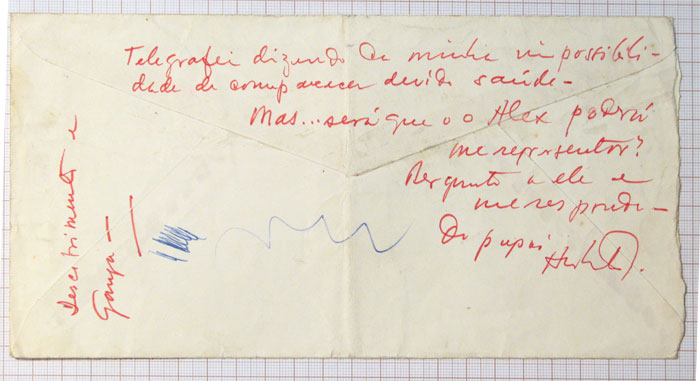 Telegrafei dizendo da minha impossibili-
dade de comparecer devido saúde-
Mas...será que o o Alex poderá
me representar?
Pergunte a ele e
me responde-
Do papai
e
Ganya-